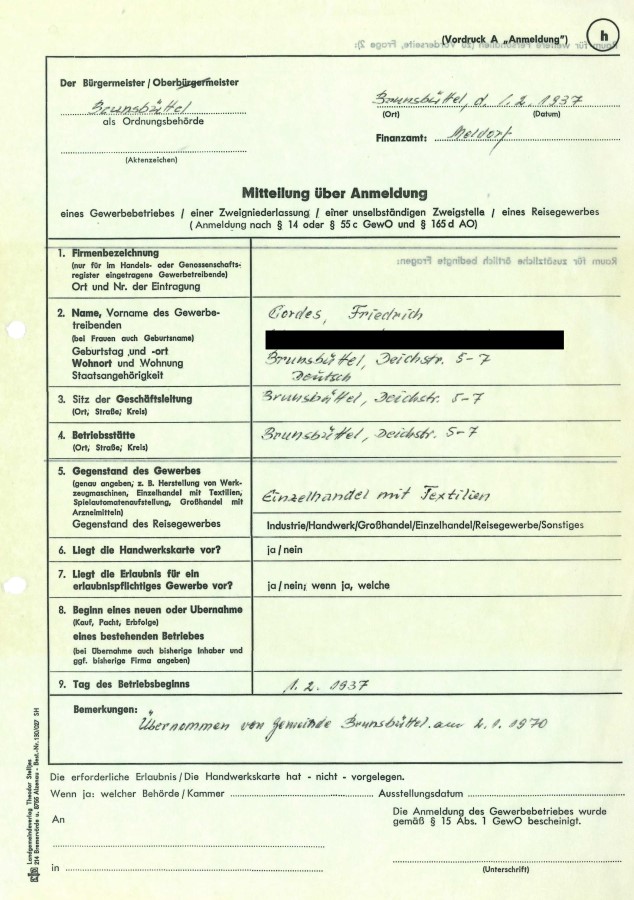 (Vordruck A „Anmeldung")
h
Raum für weitere Personalien (zu Vorderseite, Frage 2):
Der Bürgermeister / Oberbürgermeister
Brunsbüttel
als Ordnungsbehörde
(Aktenzeichen)
Brunsbüttel, d. 1.2.1937
(Ort) (Datum)
Finanzamt: Meldorf
Mitteilung über Anmeldung
eines Gewerbebetriebes / einer Zweigniederlassung / einer unselbständigen Zweigstelle / eines Reisegewerbes
(Anmeldung nach § 14 oder § 55 c GewO und § 165 d AO)
Raum für zusätzliche örtlich bedingte Fragen:
1. Firmenbezeichnung
(nur für im Handels- oder Genossenschafts-
register eingetragene Gewerbetreibende)
Ort und Nr. der Eintragung
2. Name, Vorname des Gewerbe-
treibenden
(bei Frauen auch Geburtsname)
Geburtstag und -ort
Wohnort und Wohnung
Staatsangehörigkeit
Cordes, Friedrich
Brunsbüttel, Deichstr. 5-7
Deutsch
3. Sitz der Geschäftsleitung
(Ort, Straße, Kreis)
Brunsbüttel, Deichstr. 5-7
4. Betriebsstätte
(Ort, Straße, Kreis)
Brunsbüttel, Deichstr. 5-7
5. Gegenstand des Gewerbes
(genau angeben, z. B. Herstellung von Werk-
zeugmaschinen, Einzelhandel mit Textilien,
Spielautomatenaufstellung, Großhandel mit
Arzneimitteln)
Gegenstand des Reisegewerbes
Einzelhandel mit Textilien
Industrie/Handwerk/Großhandel/Einzelhandel/Reisegewerbe/Sonstiges
6. Liegt die Handwerkskarte vor?
ja / nein
7. Liegt die Erlaubnis für ein
erlaubnispflichtiges Gewerbe vor?
ja / nein; wenn ja, welche
8. Beginn eines neuen oder Ubernahme
(Kauf, Pacht, Erbfolge)
eines bestehenden Betriebes
(bei Übernahme auch bisherige Inhaber und
ggf. bisherige Firma angeben)
9. Tag des Betriebsbeginns
1.2.1937
Bemerkungen:
Übernommen von Gemeinde Brunsbüttel am 2.1.1970
Die erforderliche Erlaubnis / Die Handwerkskarte hat - nicht - vorgelegen.
Wenn ja: welcher Behörde / Kammer Ausstellungsdatum
An
in
Die Anmeldung des Gewerbebetriebes wurde
gemäß § 15 Abs. 1 GewO bescheinigt.
(Unterschrift)
Landgemeindeverlag Theodor Stelljes
214 Bremervörde u. 8755 Alzenau - Best.-Nr. 130/027 SH